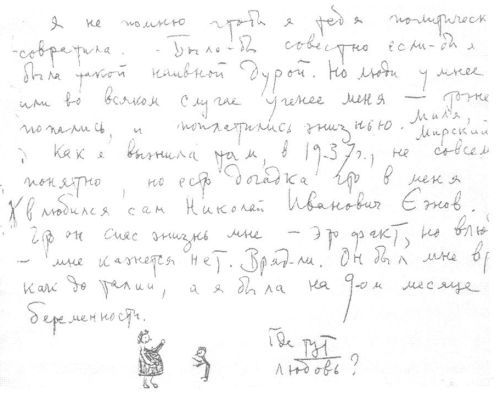 Я не помню чтобы я тебя политическ
-совратила. - Было-бы совестно если-бы я
была такой наивной дурой. Но люди умнее
или во всяком случае ученее меня — тоже
попались, и поплатились жизнью. Миля, Мирский
Как я выжила там, в 1937г., не совсем
понятно, но есть догадка что в меня
влюбился сам Николай Иванович Ежов.
Что он спас жизнь мне — это факт, но влю
- мне кажется нет. Вряд-ли. Он был мне вр
как до талии, а я была на 9-ом месяце
беременности.
Где тут
любовь?